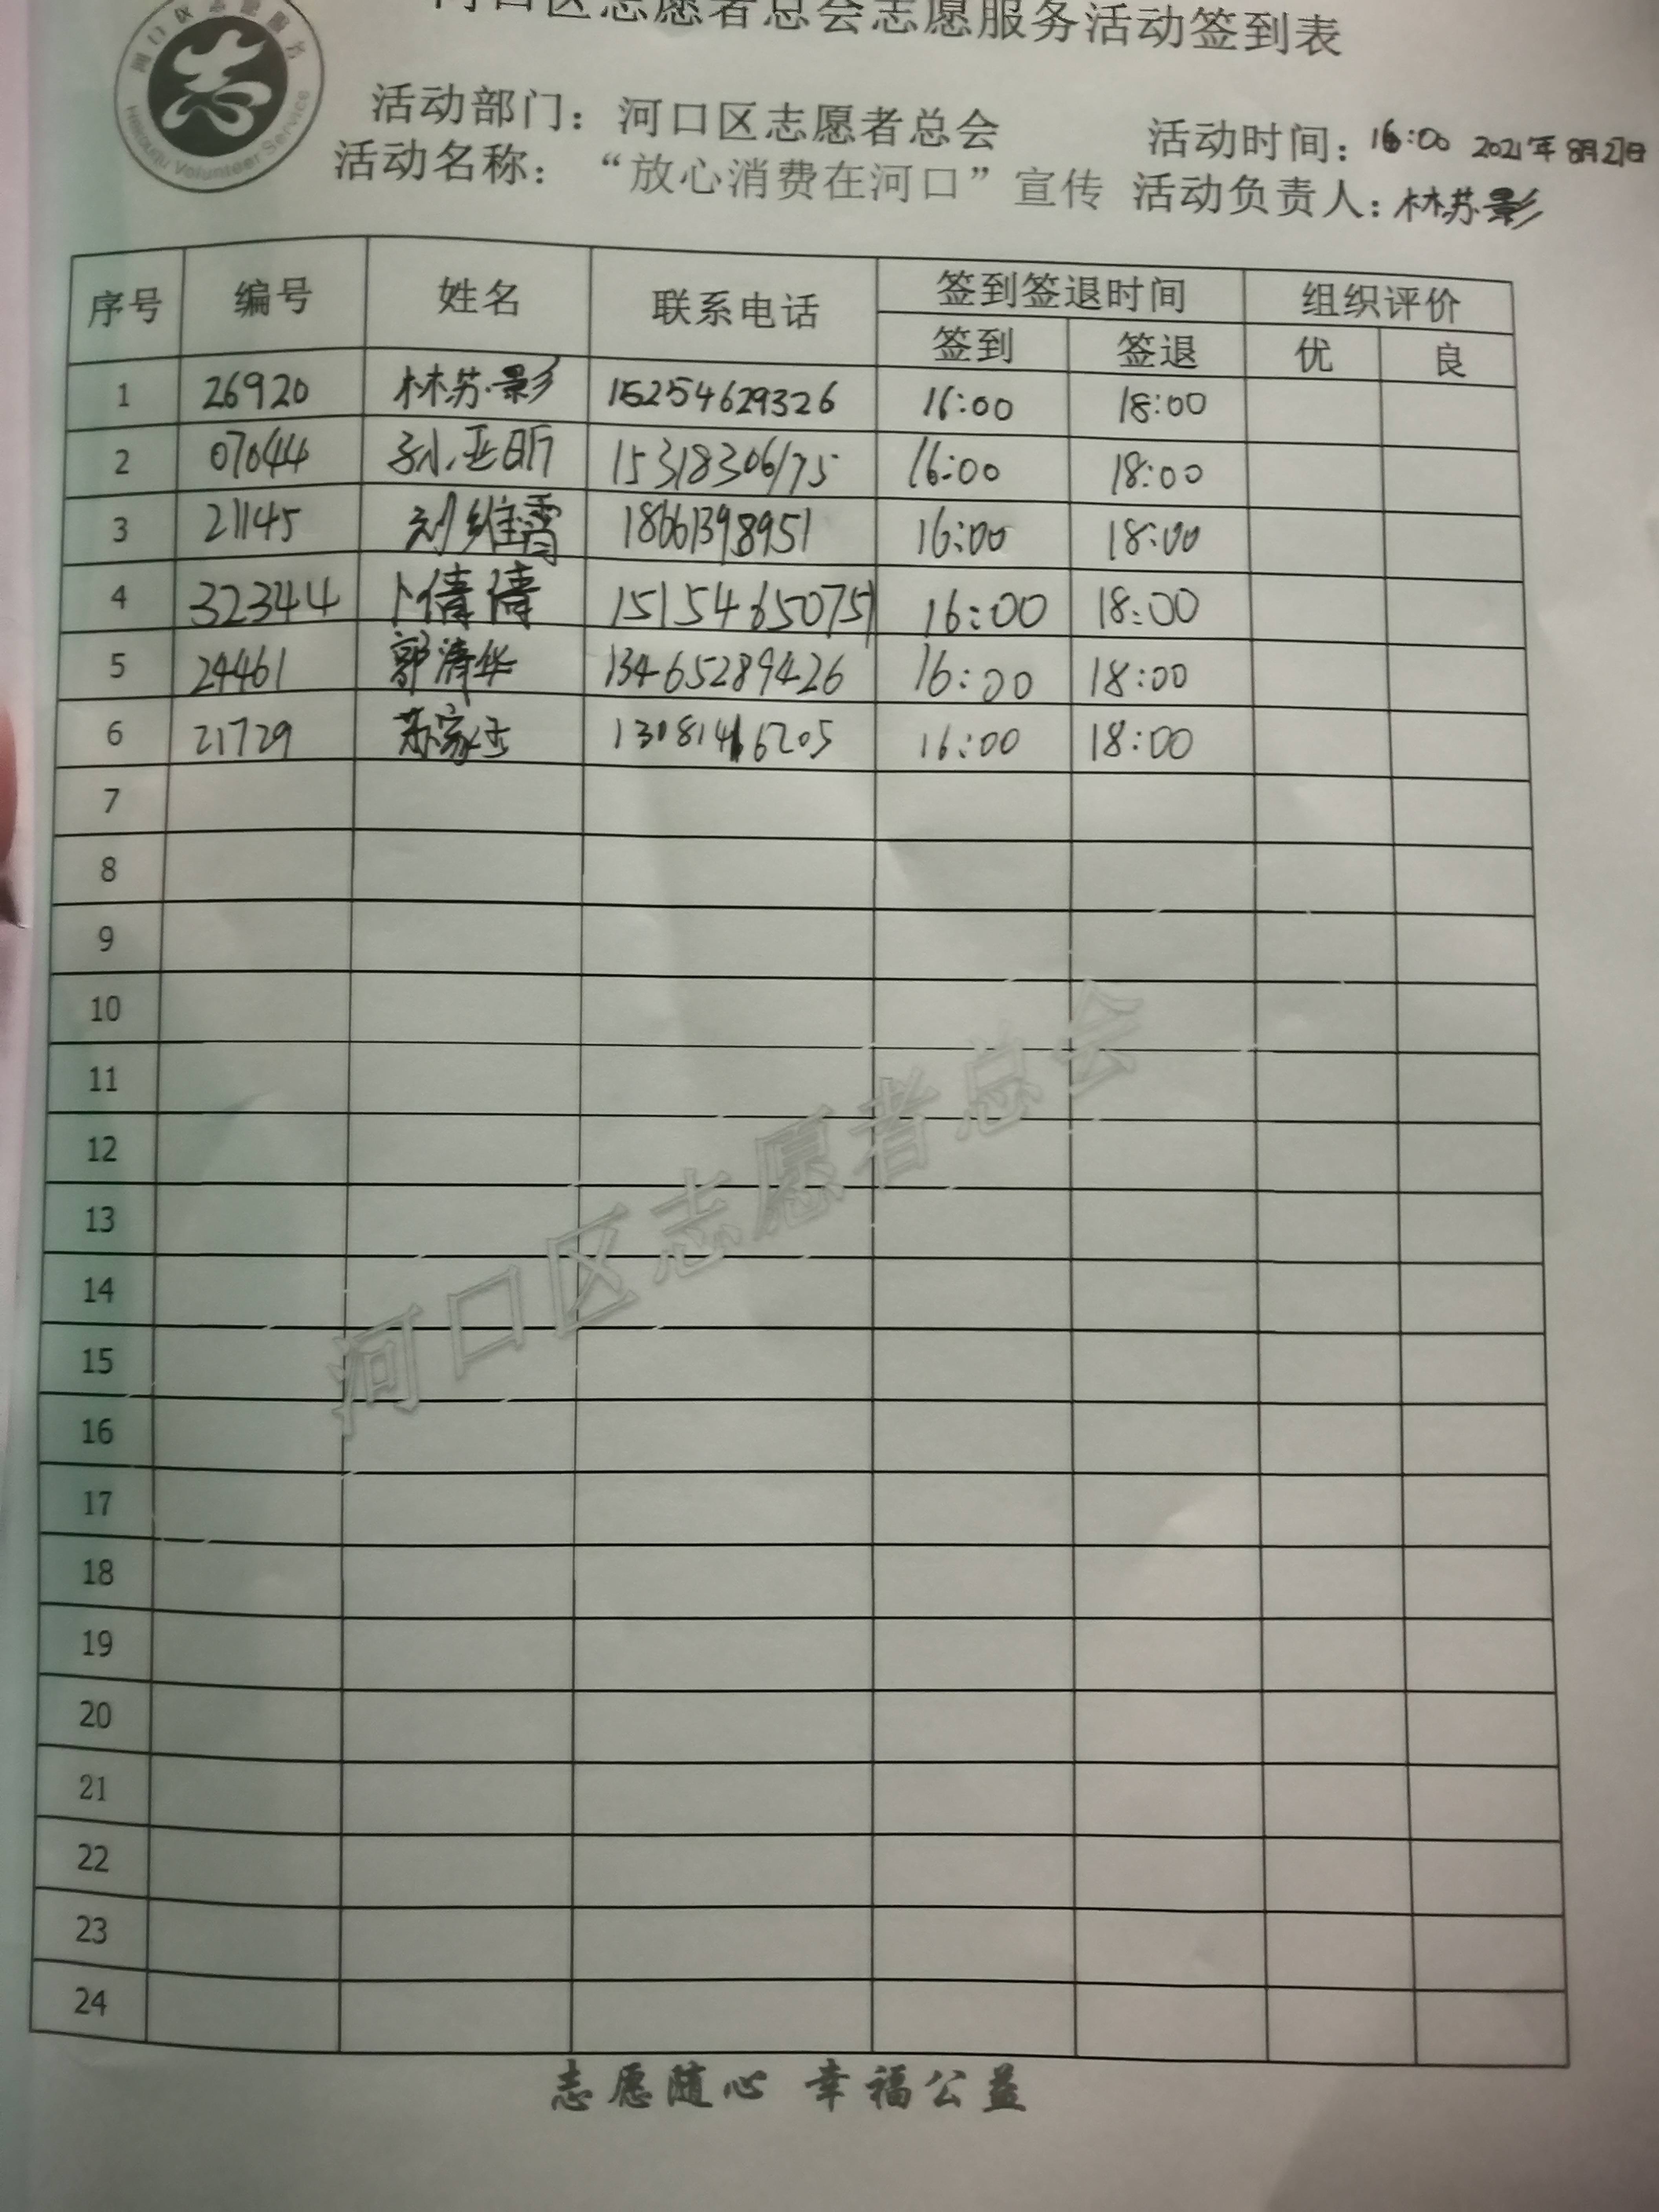 河口区志愿者总会志愿服务活动签到表
河口区志愿服务
Hekouqu Volunteer Service
活动部门：河口区志愿者总会 活动时间：16:00 2021年8月27日
活动名称：“放心消费在河口”宣传 活动负责人：林苏影
序号 编号 姓名 联系电话 签到签退时间 组织评价
签到 签退 优 良
1 26920 林苏影 15254629326 16:00 18:00
2 07044 孙亚昕 15318306175 16:00 18:00
3 21145 刘维霄 18661398951 16:00 18:00
4 32344 卜倩倩 15154650751 16:00 18:00
5 24461 郭清华 13465289426 16:00 18:00
6 21729 苏家玉 16:00 18:00
7
8
9
10
11
12
13
14
15
16
17
18
19
20
21
22
23
24
河口区志愿者总会
志愿随心 幸福公益